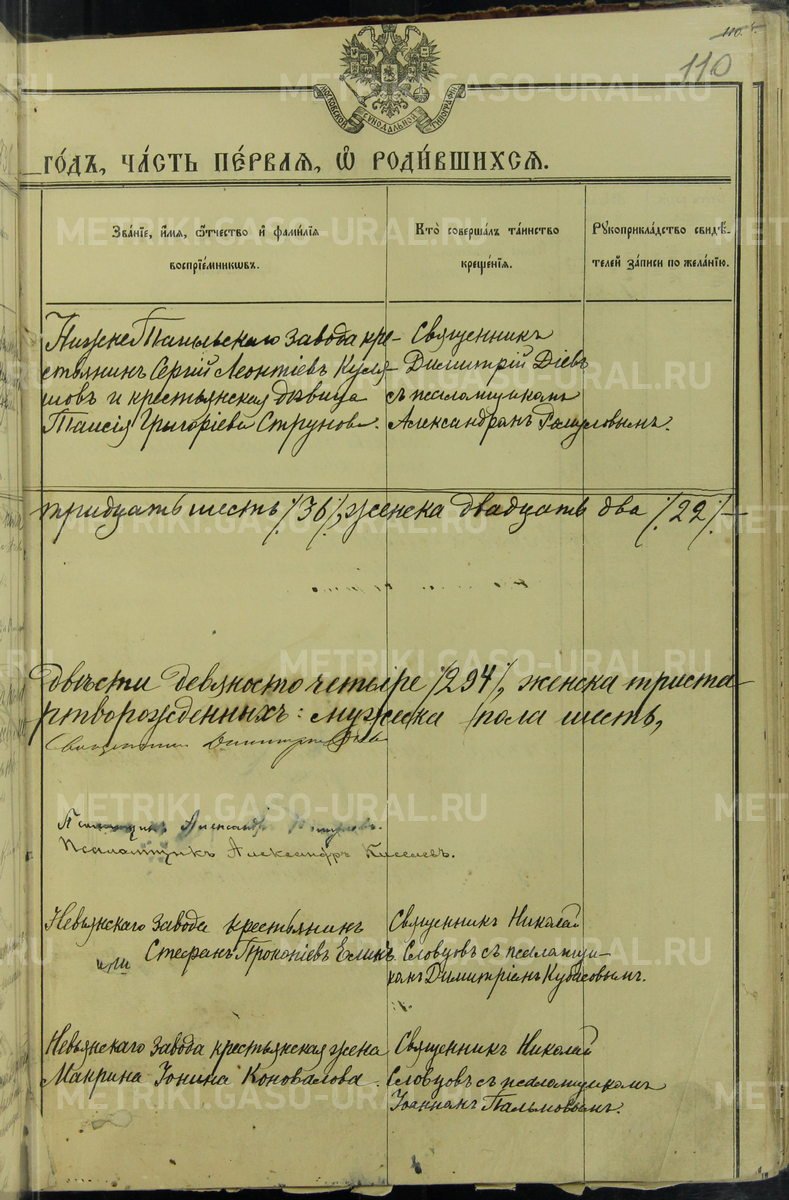 110
110
МОСКОВСКОЙ СѴНОДАЛЬНОЙ ТИПОГРАФІИ
ГО́ДЪ, ЧА́СТЬ ПЕ́РВАЯ, Ѽ РОДИ́ВШИХСЯ.
Зва́нїе, и҆́мя, ѻ҆́тчество и҆ фами́лїя
воспрїе́мникѡвъ.
Кто̀ соверша́лъ та́инство
креще́нїя.
Рꙋкоприкла́дство свидѣ́-
телей за́писи по жела́нїю.
НижнеТагильскаго завода кре-
стьянинъ Сергій Леонтіевъ Куля-
шовъ и крестьянская девица
Таисія Григоріева Струнова.
Священникъ
Димитрій Діевъ
съ псаломщикомъ
Александромъ
тридцать шесть /36/, женска двадцать два /22/
двѣсти девяносто четыре /294/, женска триста
ртворожденныхъ: мужска пола шесть,
Священникъ Димитрій Діевъ
Псаломщикъ Александръ
Псаломщикъ Александръ Киселевъ.
Невьянскаго завода крестьянинъ
Стефанъ Прокопіевъ
Священникъ Николай
Словцовъ съ псаломщи-
комъ Димитріемъ Кубасовымъ.
Невьянскаго завода крестьянская жена
Макрина Іонина Коновалова.
Священникъ Николай
Словцовъ съ псаломщикомъ
Іоанномъ Пальмовымъ.
METRIKI.GASO-URAL.RU